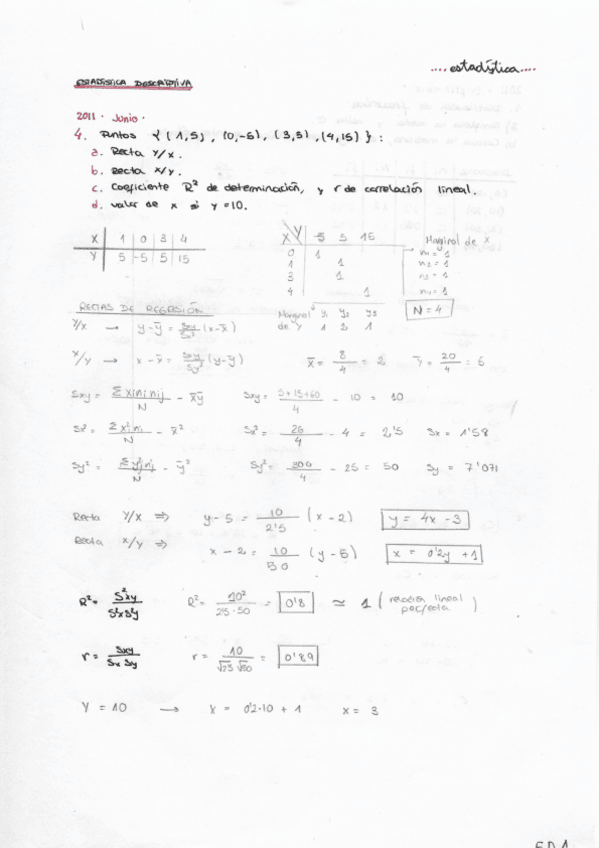 ....estadística....
ESTADÍSTICA DESCRIPTIVA
2011 · Junio ·
4. Puntos { (1,5), (0,-5), (3,5), (4,15) } :
a. Recta Y/X.
b. Recta X/Y.
c. Coeficiente R² de determinación, y r de correlación lineal.
d. valor de x si y=10.
X | 1 | 0 | 3 | 4
Y | 5 | -5 | 5 | 15
X Y -5 5 15 Marginal de X
0 1 n₁ = 1
1 1 n₂ = 1
3 1 n₃ = 1
4 1 n₄ = 1
Marginal de Y y₁ y₂ y₃
1 2 1
N = 4
RECTAS DE REGRESIÓN
Y/X → y-ȳ = Sxy/Sx² (x-x̄)
X/Y → x-x̄ = Sxy/Sy² (y-ȳ)
x̄ = 8/4 = 2 ȳ = 20/4 = 5
Sxy = Σxi nj nij/N - x̄ȳ Sxy = 5+15+60/4 - 10 = 10
Sx² = Σxi² ni/N - x̄² Sx² = 26/4 - 4 = 2'5 Sx = 1'58
Sy² = Σyj² nj/N - ȳ² Sy² = 300/4 - 25 = 50 Sy = 7'071
Recta Y/X ⇒ y-5 = 10/2'5 (x-2) y = 4x-3
Recta X/Y ⇒ x-2 = 10/50 (y-5) x = 0'2y +1
R² = S²xy/S²x S²y R² = 10²/25·50 = 0'8 ≃ 1 ( relación lineal perfecta )
r = Sxy/Sx Sy r = 10/√25 √50 = 0'89
Y = 10 → x = 0'2·10 + 1 x = 3